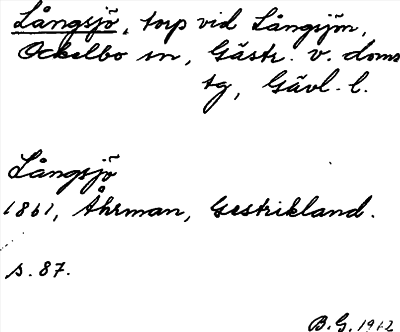 Långsjö, torp vid Långsjön,
Ockelbo sn, Gästr. v. doms
tg, Gävl. l.
Långsjö
1861, Åhrman, Gestrikland.
s. 87.
B.G. 1912